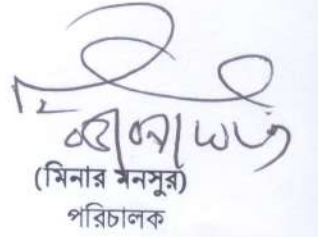 (মিনার মনসুর)
পরিচালক